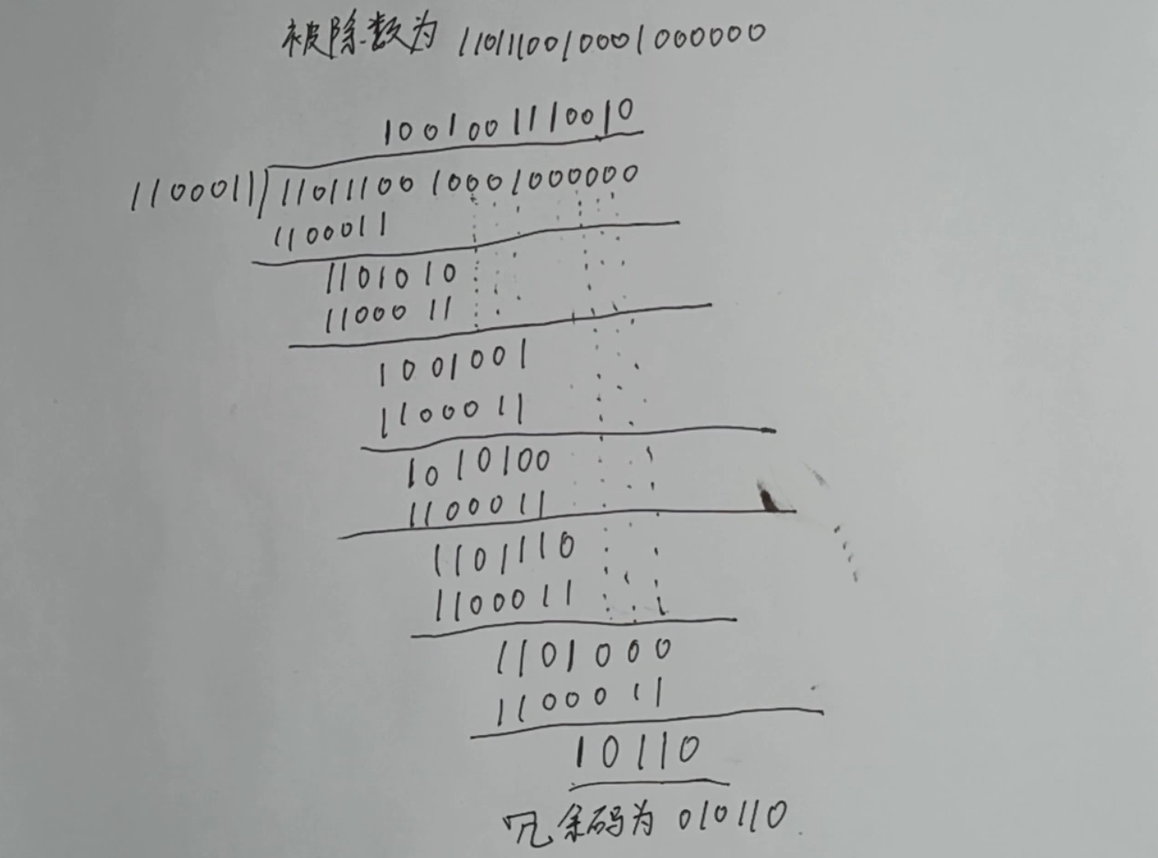 被除数为 1101110010001000000
1001001110010
1100011 11011100 10001000000
1100011
1101010
1100011
1001001
1100011
1010100
1100011
1101110
1100011
1101000
1100011
10110
冗余码为 010110